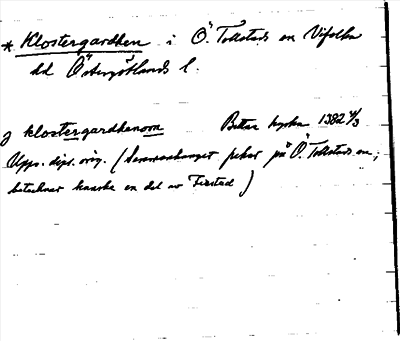 * Klostergardhen i Ö. Tollstads sn Vifolka
hd Östergötlands l.
J klostergardhenom Betae kyrka 1382 4/3
Upps. dipl. orig. (Sammanhanget pekar på Ö. Tollstads sn;
betecknar kanske en del av Fiестad)